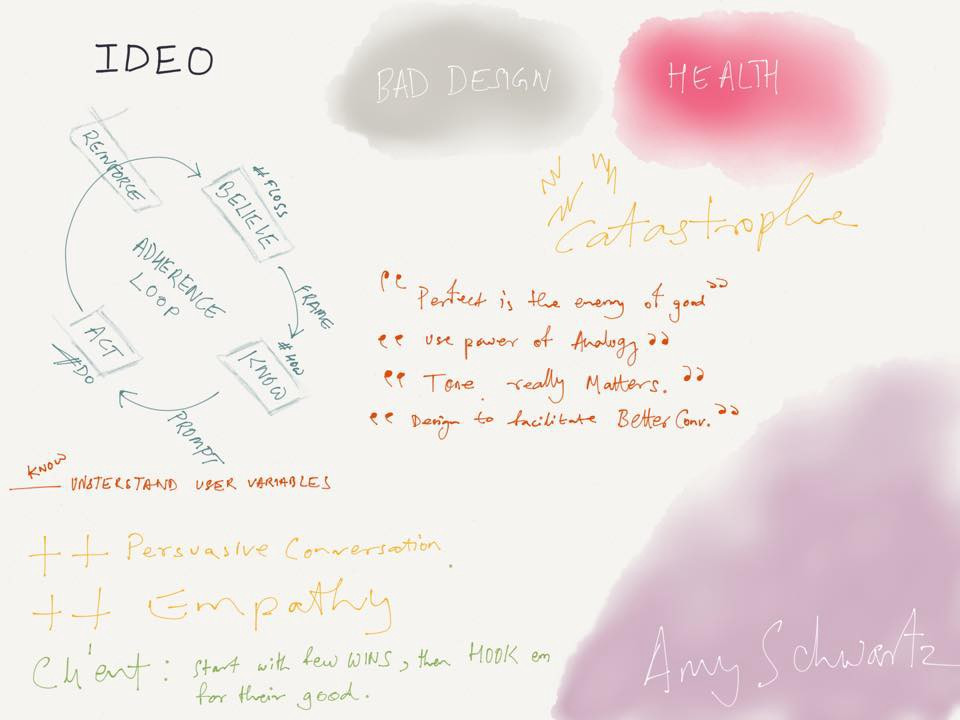 IDEO
BAD DESIGN
HEALTH
catastrophe
REINFORCE
BELIEVE
#FLOSS
FRAME
KNOW
#HOW
PROMPT
ACT
#DO
ADHERENCE
LOOP
"Perfect is the enemy of good"
"use power of Analogy"
"Tone really Matters."
"Design to facilitate Better Conv."
KNOW
UNSTERSTAND USER VARIABLES
++ Persuasive Conversation.
++ Empathy
Client: Start with few WINS, then HOOK em
for their good.
Amy Schwartz